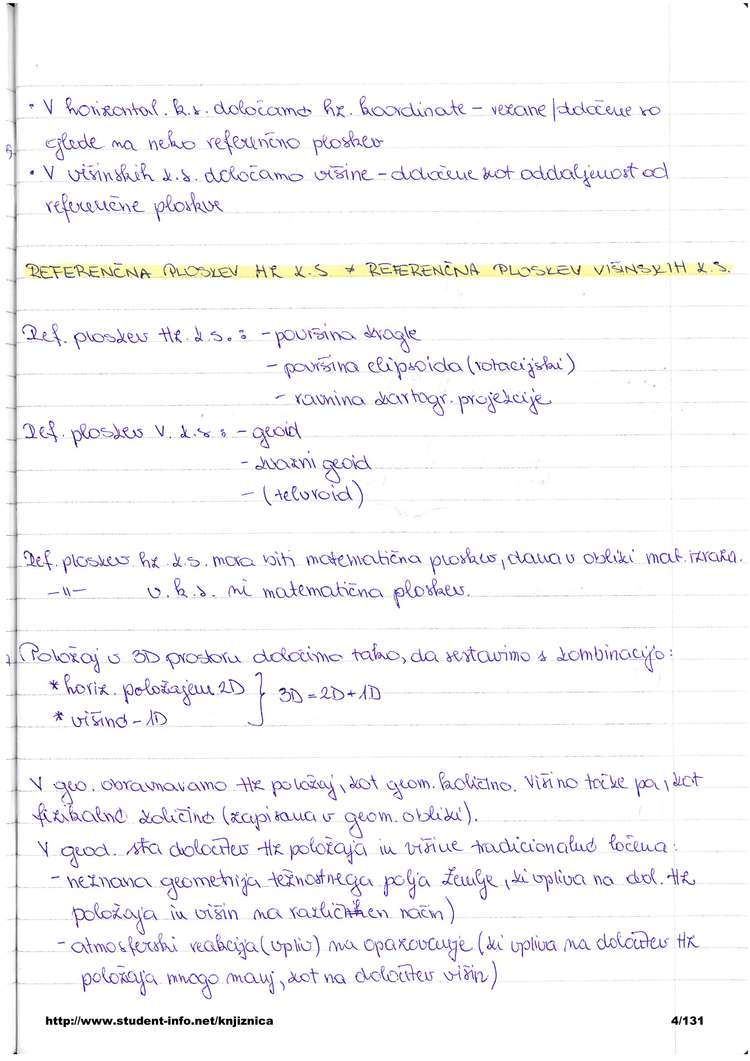 • V horizontal. k.s. določamo hz. koordinate - vezane/določene so
glede na neko referenčno ploskev
5.
• V višinskih k.s. določamo višine - določene kot oddaljenost od
referenčne ploskve
REFERENČNA PLOSKEV HZ K.S ≠ REFERENČNA PLOSKEV VIŠINSKIH K.S.
Ref. ploskev Hz. k.s. : - površina krogle
- površina elipsoida (rotacijski)
- ravnina kartogr. projekcije
Ref. ploskev V. k.s. : - geoid
- kvazni geoid
- (teluroid)
Ref. ploskev hz k.s. mora biti matematična ploskev, dana v obliki mat. izraza.
-||- v. k.s. ni matematična ploskev.
Položaj v 3D prostoru določimo tako, da sestavimo s kombinacijo:
* horiz. položajem 2D } 3D = 2D + 1D
* višino - 1D
V geo. obravnavamo Hz položaj, kot geom. količino. Višino točke pa, kot
fizikalno količino (zapisana v geom. obliki).
V geod. sta določitev Hz položaja in višine tradicionalno ločena:
- neznana geometrija težnostnega polja Zemlje, ki vpliva na dol. Hz
položaja in višin na različen način)
- atmosferski reakcija (vpliv) na opazovanje (ki vpliva na določitev Hz
položaja mnogo manj, kot na določitev višin)
http://www.student-info.net/knjiznica 4/131